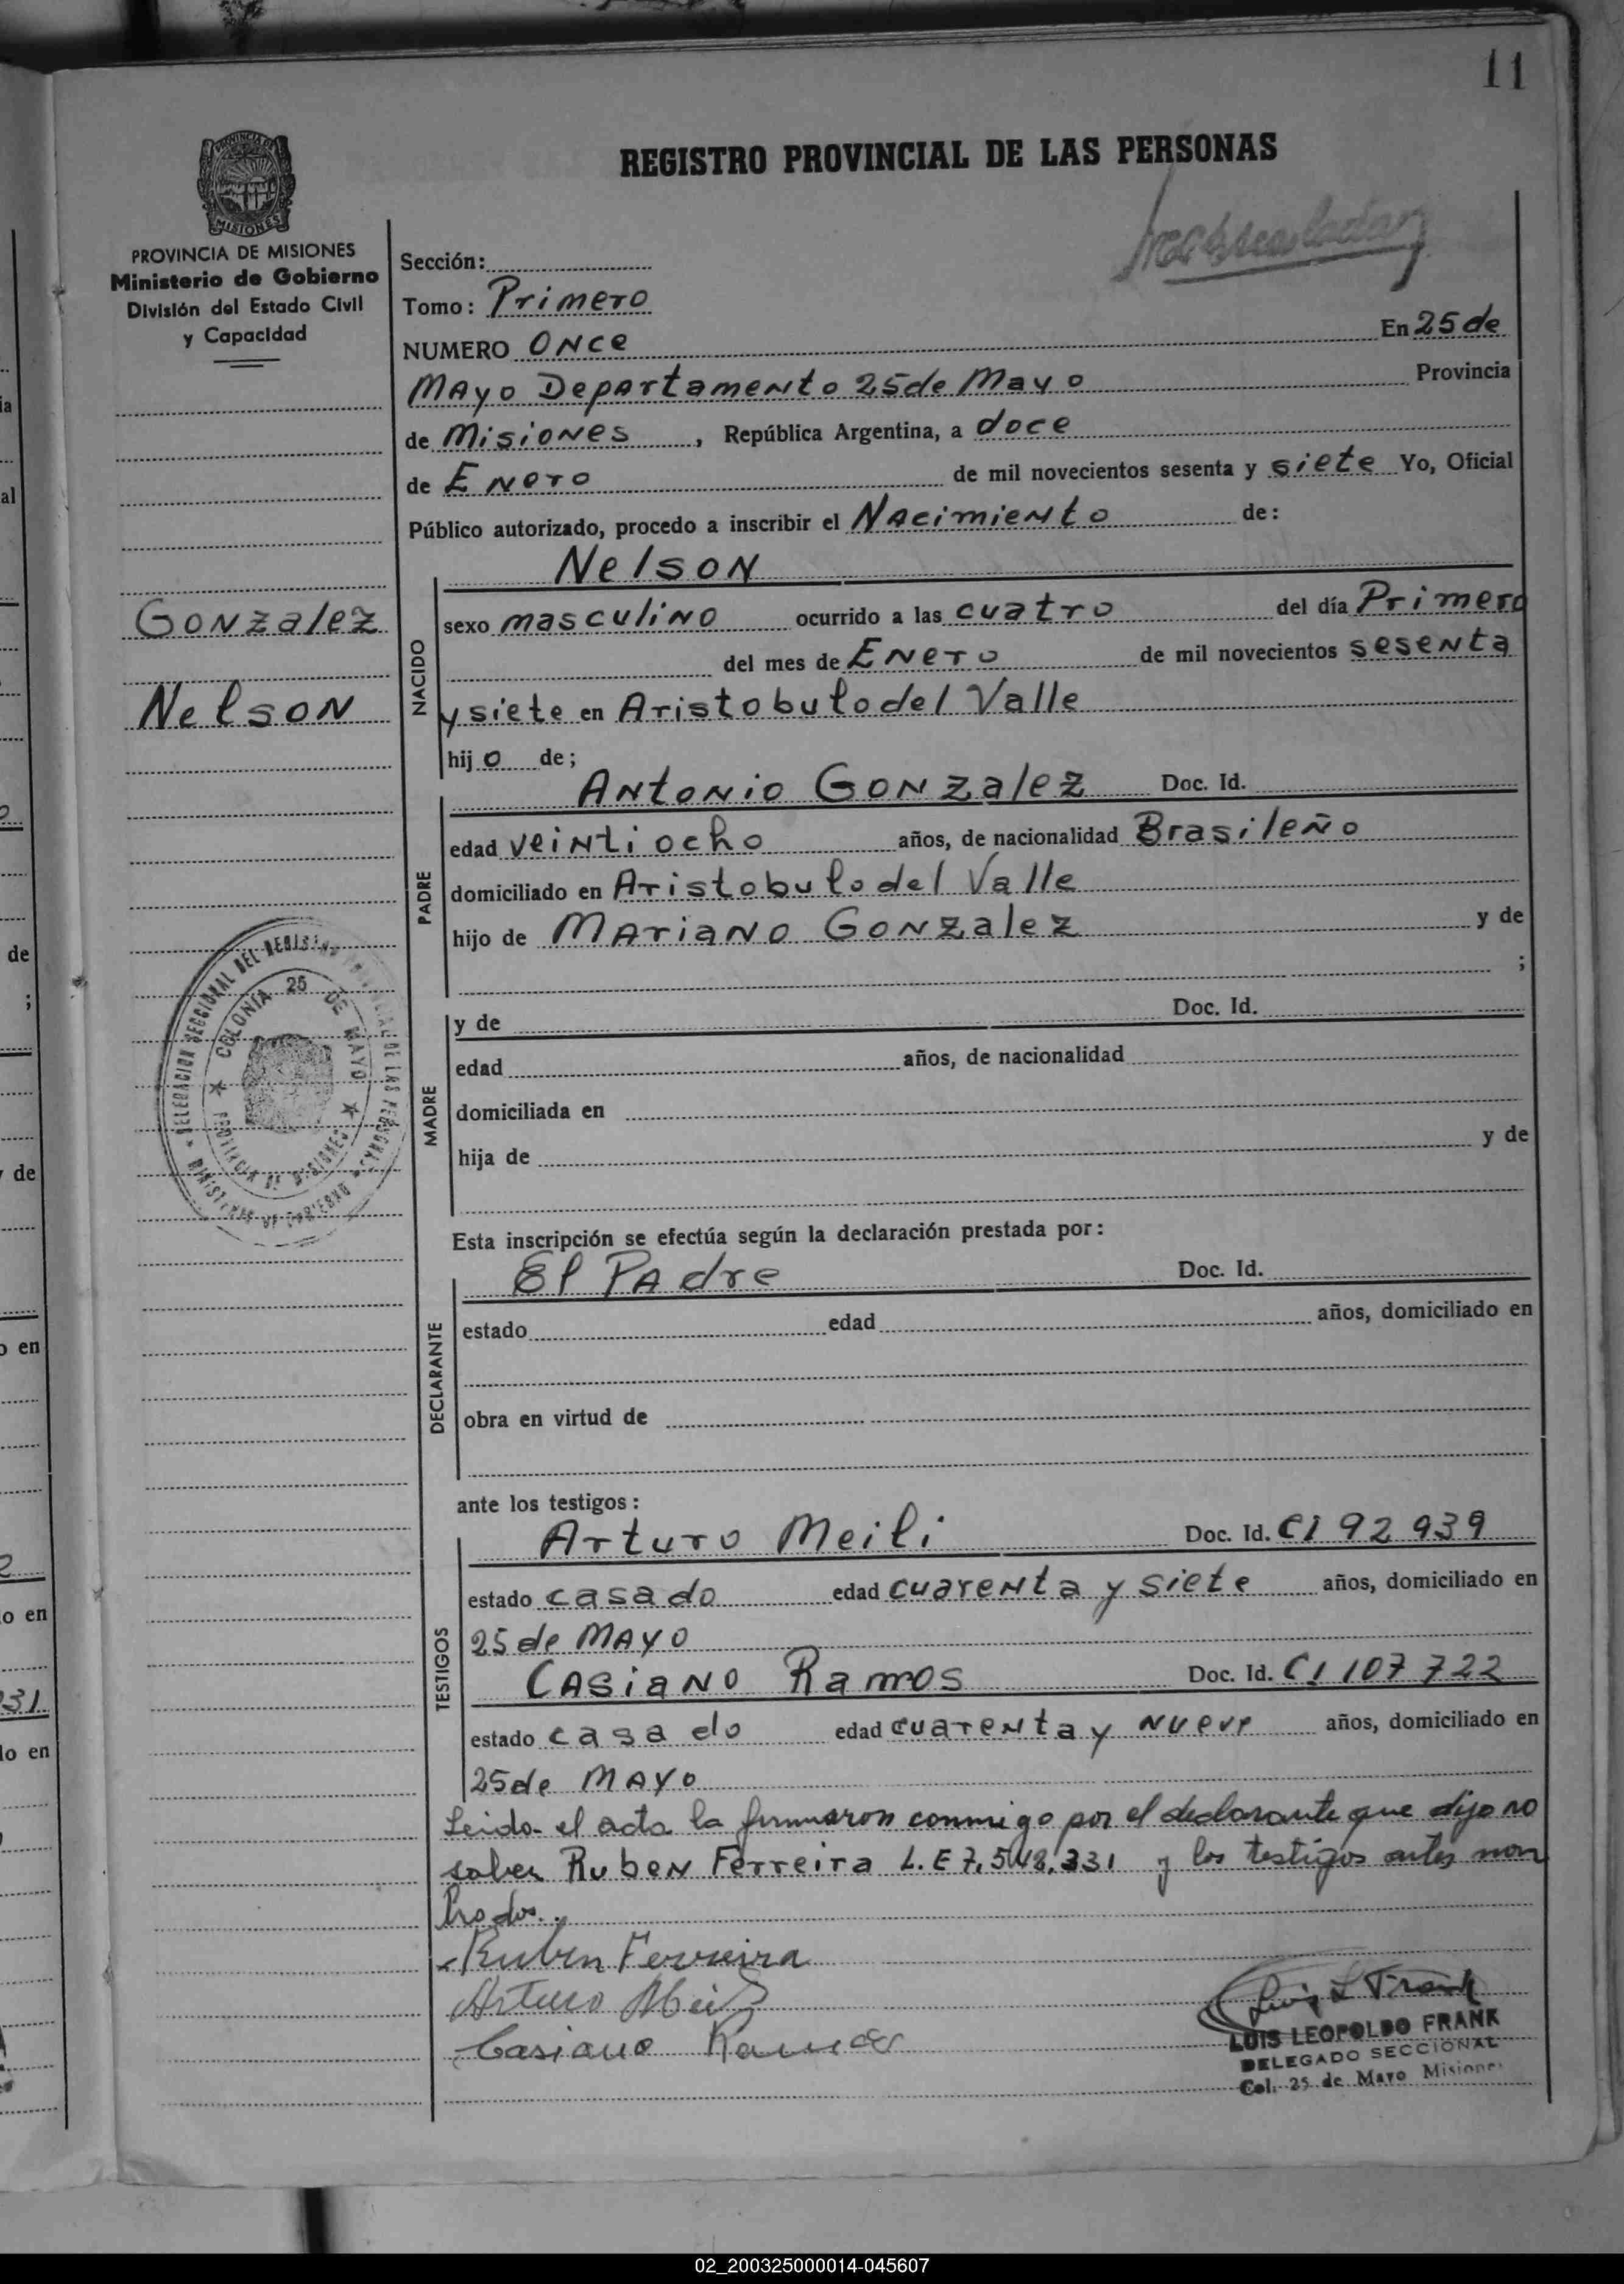 11
REGISTRO PROVINCIAL DE LAS PERSONAS
PROVINCIA DE
MISIONES
PROVINCIA DE MISIONES
Ministerio de Gobierno
División del Estado Civil
y Capacidad
Sección:
Tomo: Primero
NUMERO ONce En 25 de
MAyo Departamento 25 de Mayo Provincia
de Misiones, República Argentina, a doce
de ENero de mil novecientos sesenta y siete Yo, Oficial
Público autorizado, procedo a inscribir el NAcimiento de:
NelsoN
Gonzalez
NelsoN
NACIDO
sexo masculino ocurrido a las cuatro del día Primero
del mes de ENero de mil novecientos sesenta
y siete en Aristobulo del Valle
hijo de;
PADRE
ANtoNio GoNzalez Doc. Id.
edad veintiocho años, de nacionalidad Brasileño
domiciliado en Aristobulo del Valle
hijo de MAriaNo GoNzalez y de
;
MADRE
y de Doc. Id.
edad años, de nacionalidad
domiciliada en
hija de y de
DELEGACION SECCIONAL DEL REGISTRO PROVINCIAL DE LAS PERSONAS
MINISTERIO DE GOBIERNO
COLONIA 25 DE MAYO
PROVINCIA DE MISIONES
Esta inscripción se efectúa según la declaración prestada por:
DECLARANTE
El PAdre Doc. Id.
estado edad años, domiciliado en
obra en virtud de
ante los testigos:
TESTIGOS
Arturo Meili Doc. Id. CI 92 939
estado casado edad cuarenta y siete años, domiciliado en
25 de MAyo
CASiaNo Ramos Doc. Id. CI 107 722
estado casado edad cuarenta y nueve años, domiciliado en
25 de MAyo
Leida el acta la firmaron conmigo por el declarante que dijo no
saber RubeN Ferreira L.E 7,548,331 y los testigos antes nom
brados.
Ruben Ferreira
Arturo Meili
Casiano Ramos
Luis L Frank
LUIS LEOPOLDO FRANK
DELEGADO SECCIONAL
Col. 25 de Mayo Misiones
ia
al
de
;
y de
o en
o en
31
lo en
02_200325000014-045607